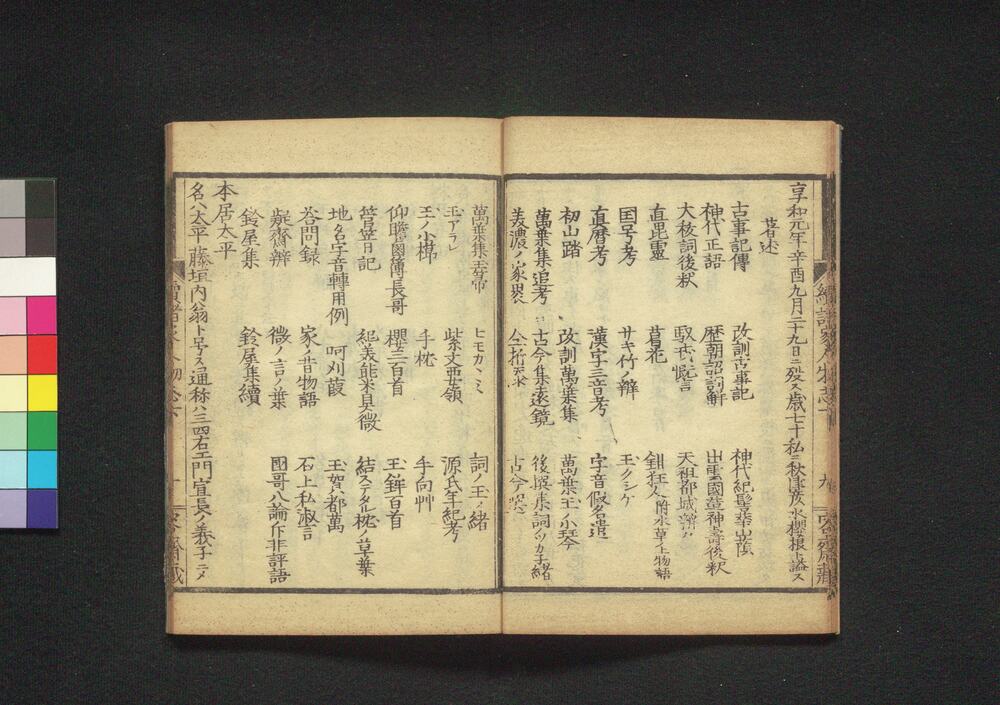 享和元年辛酉九月二十九日ニ殁ス歳七十私ニ秋津彦水櫻根ト謚ス
著述
古事記傳 改訓古事記 神代紀髻華山蔭
神代正語 歴朝詔詞解 出雲國造神壽後釈
大祓詞後釈 馭戎慨言 天祖都城辨々
直毘靈 葛花 鉗狂人 附水草ノ上物語
国号考 サキ竹ノ辨 玉クシケ
真暦考 漢字三音考 字音假名遣
初山踏 改訓萬葉集 萬葉玉ノ小琴
萬葉集追考 古今集遠鏡 後撰集詞ノツカ子緒
美濃ノ家裹 仝折添
萬葉集玉箒 ヒモカヽミ 詞ノ玉ノ緒
玉アラレ 紫文要領 源氏年紀考
玉ノ小櫛 手枕 手向艸
仰瞻鹵簿長哥 櫻三百首 玉鉾百首
菅笠日記 紀美能米具微 結ステタル枕ノ草葉
地名字音轉用例 呵刈葭 玉賀都萬
答問録 家ノ昔物語 石上私淑言
疑齋辨 微ノ言ノ葉 國哥八論斥非評語
鈴屋集 鈴屋集續
本居太平
名ハ太平藤垣内翁ト号ス通称ハ三四右エ門宣長ノ義子ニメ